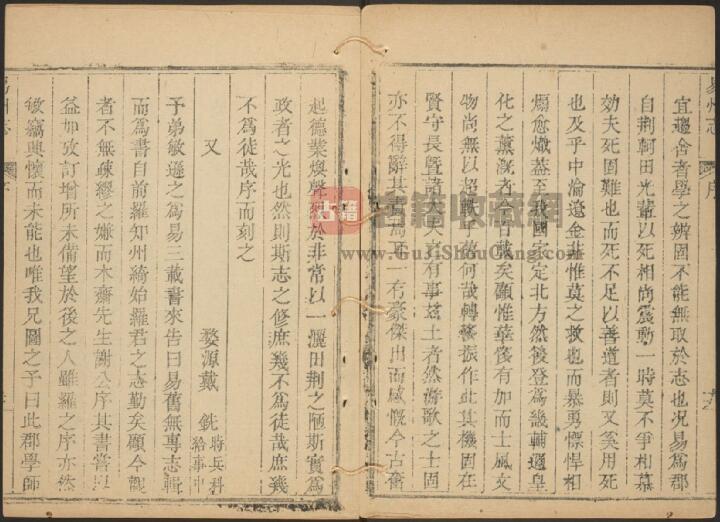 易州志 序
宜邇舍者學之辨固不能無取於志也况易爲郡
自荆軻田光輩以死相尚震動一時莫不爭相慕
効夫死固難也而死不足以善道者則又奚用死
也及乎中淪遼金葢惟莫之救也而暴勇慓悍相
煽愈熾葢至我國家定北方然後登爲畿輔邇皇
化之薰漑者今百載矣顧惟華篠有加而士風文
物尚無以超軼乎 何哉轉移振作此其機固在
賢守長曁諸大夫之有事茲土者然絃歌之士固
亦不得辭其責焉耳一有豪傑出而感慨今古奮
起德業煥聲 於非常以一灑田荆之陋斯實爲
政者之光也然則斯志之修庶幾不爲徒哉庶幾
不爲徒哉序而刻之
又
婺源戴 銑 將兵科給事中
予弟敏遜之爲易三載書來告曰易舊無專志輯
而爲書自前羅知州綺始羅君之志勤矣顧今觀
者不無疎繆之嫌而木齋先生謝公序其書嘗
益加攷訂增所未備望於後之人雖羅之序亦然
敏竊興懷而未能也唯我兄圖之予曰此郡學師
易州志 序
古籍
古籍收藏网
www.GuJiShouCang.com